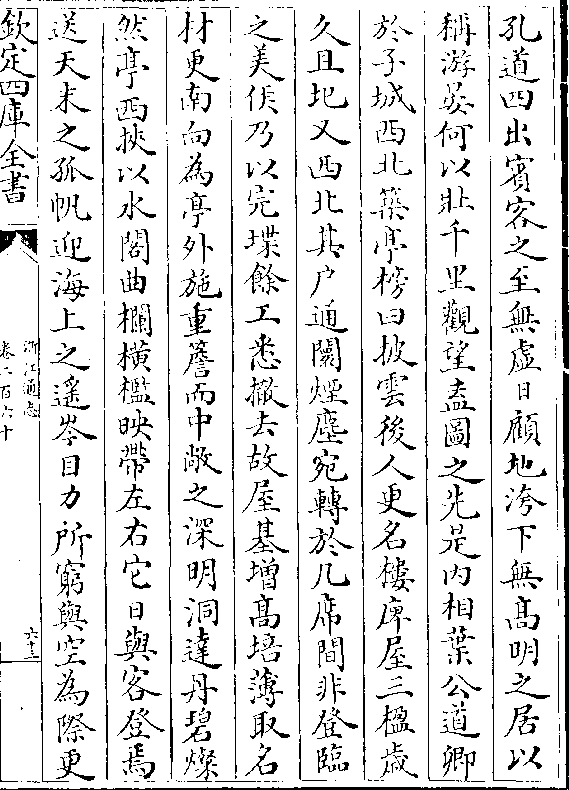 孔道四出賓客之至無虛日顧地洿下無髙明之居以
稱游晏何以壯千里觀望盍圖之先是内相葉公道卿
於子城西北築亭榜曰披雲後人更名樓庳屋三楹歳
久且圯又西北其户通闤煙塵宛轉於几席間非登臨
之美侯乃以完堞餘工悉撤去故屋基增髙培薄取名
材更南向為亭外施重簷而中敞之深明洞達丹碧燦
然亭西挾以水閣曲欄横檻映帶左右它日與客登焉
送天末之孤帆迎海上之遥岑目力所窮與空為際更
欽定四庫全書
浙江通志
卷二百六十